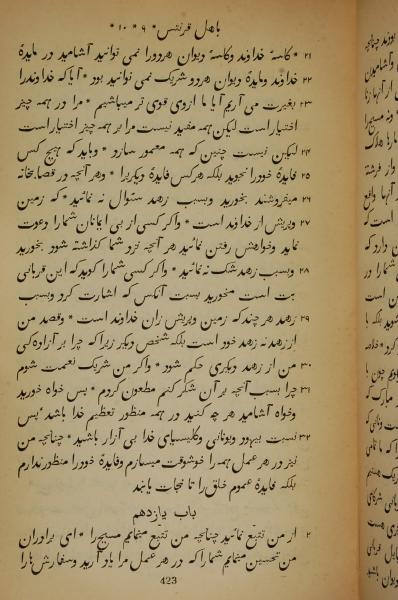 باهل قرنتس * ۹ * ۱۰ *
۲۱ * کاسهٔ خداوند وکاسهٔ دیوان هردورا نمی توانید آشامید در مایدهٔ
۲۲ خداوند ومایدهٔ دیوان هردو شریک نمی توانید بود * آیا که خداوندرا
۲۳ بغیرت می آریم آیا ما ازوی قوی تر میباشیم * مرا در همه چیز
اختیار است لیکن همه مفید نیست مرا بر همه چیز اختیار است
۲۴ لیکن نیست چنین که همه معمور سازد * وباید که هیچ کس
۲۵ فایدهٔ خودرا نجوید بلکه هرکس فایدهٔ دیگریرا * وهر آنچه در قصابخانه
۲۶ میفروشند بخورید وبسبب زهد سئوال نه نمائید * که زمین
۲۷ وپریش از خداوند است * واگر کسی از بی ایمانان شمارا دعوت
نماید وخواهش رفتن نمائید هر آنچه نزد شما گذاشته شود بخورید
۲۸ وبسبب زهد شک نه نمائید * واگر کسی شمارا گوید که این قربانی
بت است مخورید بسبب آنکس که اشارت کرد وبسبب
۲۹ زهد هر چند که زمین وپریش ازان خداوند است * وقصد من
از زهد نه زهد خود است بلکه شخص دیگر زیرا که چرا بر آزاده‌گی
۳۰ من از زهد دیگری حکم شود * واگر من شریک نعمت شوم
۳۱ چرا بسبب آنچه بر آن شکر کنم مطعون گردم * پس خواه خورید
وخواه آشامید هر چه کنید در همه منظور تعظیم خدا باشد * پس
۳۲ نسبت بیهود ویونانی وکلیسیای خدا بی آزار باشید * چنانچه من
نیز در هر عمل همه را خوشوقت میسازم وفایدهٔ خودرا منظور ندارم
بلکه فایدهٔ عموم خلق را تا نجات یابند
باب یازدهم
۲ از من تتبع نمائید چنانچه من تتبع مینمایم مسیح را * ای برادران
من تحسین مینمایم شمارا که در هر عمل مرا یاد آرید وسفارش ها را
423